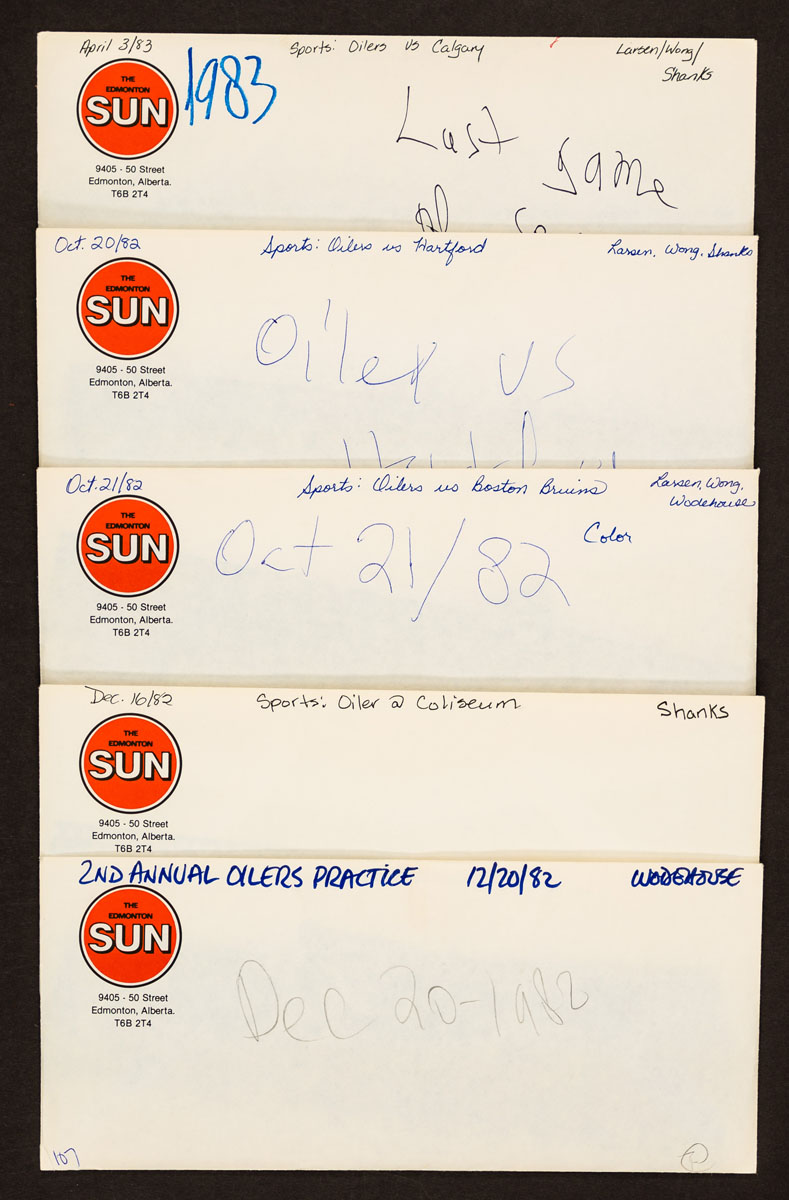 April 3/83 Sports: Oilers vs Calgary Larsen/Wong/
Shanks
THE
EDMONTON
SUN
1983
9405 - 50 Street
Edmonton, Alberta.
T6B 2T4
Last
game
Oct. 20/82 Sports: Oilers vs Hartford Larsen, Wong, Shanks
THE
EDMONTON
SUN
9405 - 50 Street
Edmonton, Alberta.
T6B 2T4
Oiler vs
Oct. 21/82 Sports: Oilers vs Boston Bruins Larsen, Wong,
Wodehouse
THE
EDMONTON
SUN
Oct 21/82
Color
9405 - 50 Street
Edmonton, Alberta.
T6B 2T4
Dec. 16/82 Sports: Oiler @ Coliseum Shanks
THE
EDMONTON
SUN
9405 - 50 Street
Edmonton, Alberta.
T6B 2T4
2ND ANNUAL OILERS PRACTICE 12/20/82 WODEHOUSE
THE
EDMONTON
SUN
9405 - 50 Street
Edmonton, Alberta.
T6B 2T4
Dec 20-1982
107